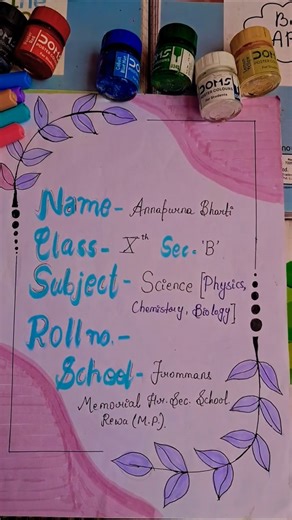 DOMS
DOMS
DOMS
DOMS
Name - Annapurna Bharti
Class - Xth Sec. 'B'
Subject - Science [Physics,
Chemistory, Biology]
Roll no. -
School - Jrommans
Memorial Hr. Sec. School
Rewa (M.P.)